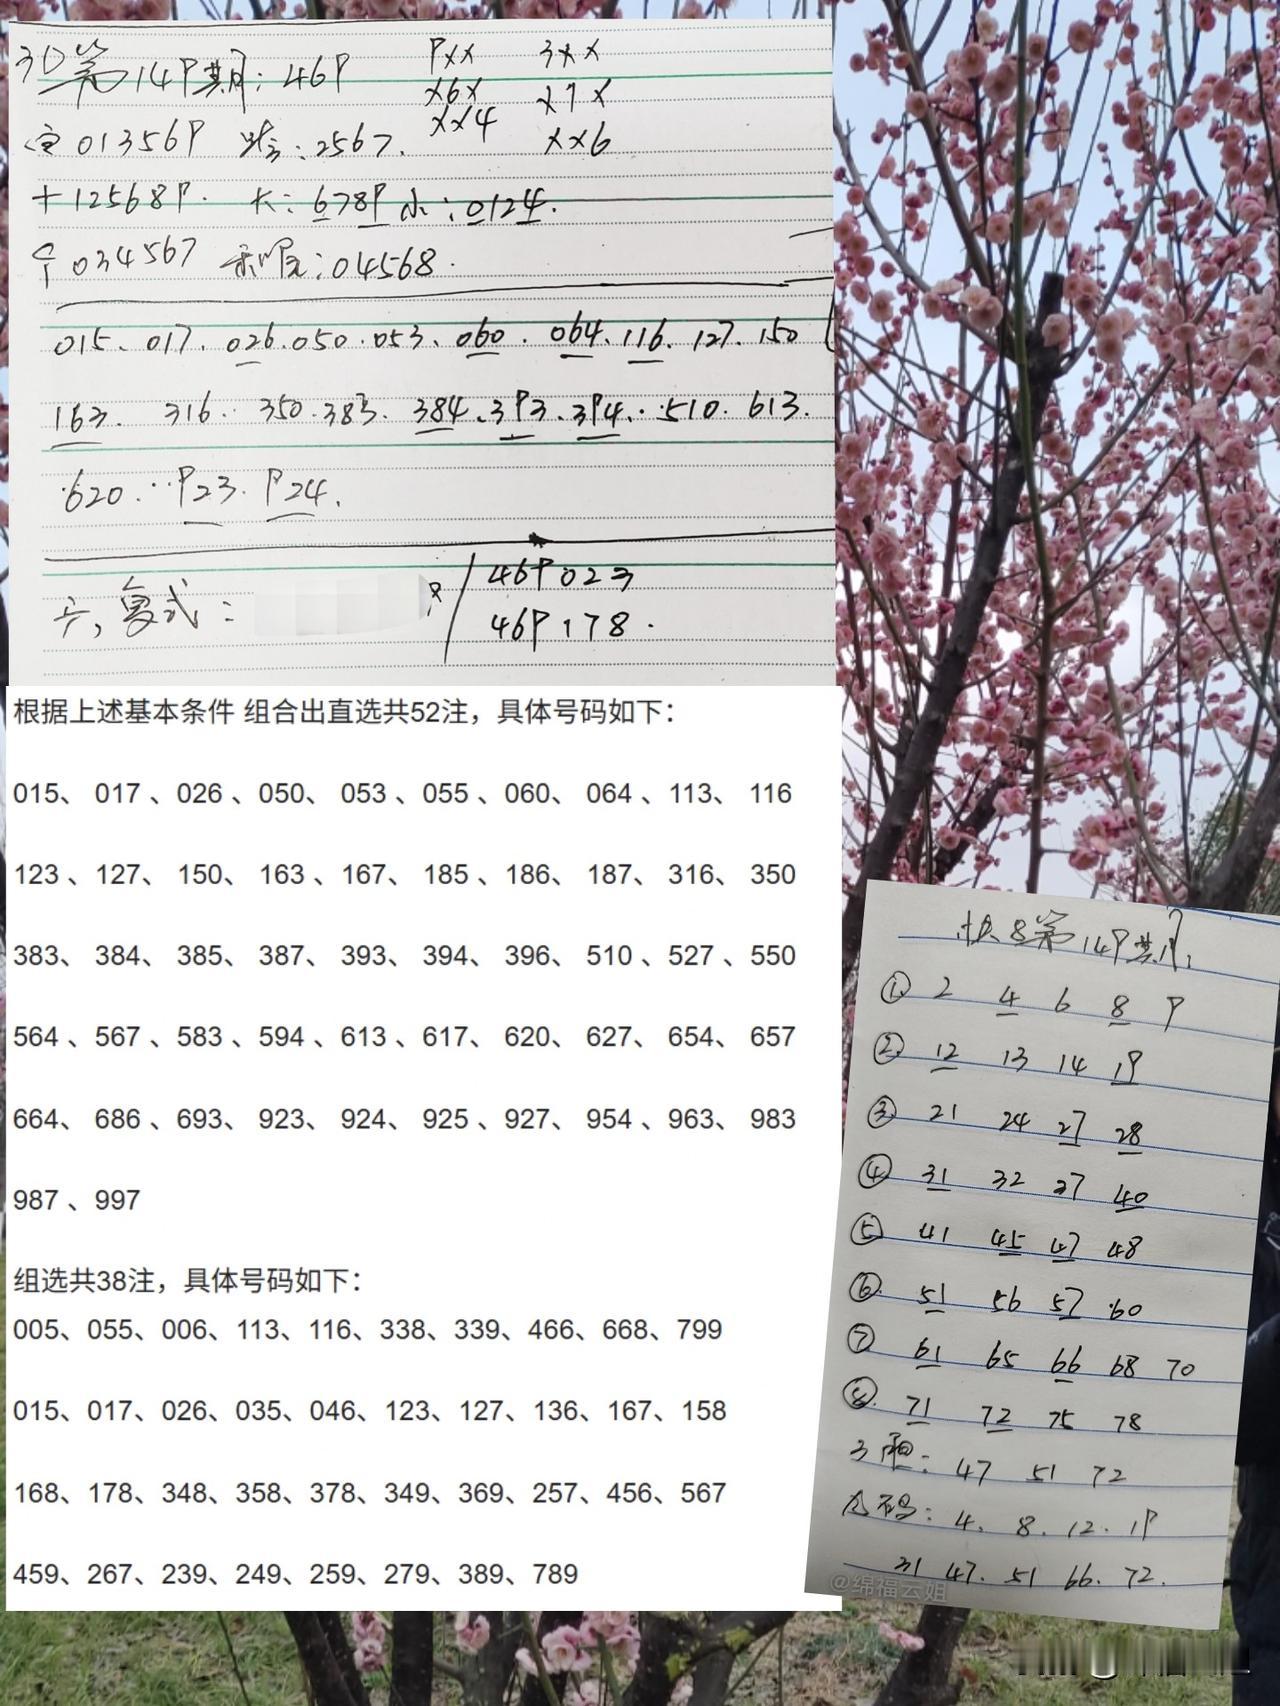 3D第149期：469
9xx 3xx
x6x x7x
xx4 xx6
百013569 跨：2567.
十125689. 大：6789 小：0124.
个034567 和尾：04568.
015、017、026.050.053、060.064.116.127.150
163. 316. 350.383.384.393.394.510.613.
620. 923. 924.
六，复式：
469023
469178.
根据上述基本条件 组合出直选共52注，具体号码如下：
015、 017 、026 、050、 053 、055 、060、 064 、113、 116
123 、127、 150、 163 、167、 185 、186、 187、 316、 350
383、 384、 385、 387、 393、 394、 396、 510 、527 、550
564 、567 、583 、594 、613 、617、 620、 627、 654、 657
664、 686 、693、 923、 924、 925 、927、 954 、963、 983
987 、997
组选共38注，具体号码如下：
005、055、006、113、116、338、339、466、668、799
015、017、026、035、046、123、127、136、167、158
168、178、348、358、378、349、369、257、456、567
459、267、239、249、259、279、389、789
快8第149期：
① 2 4 6 8 9
② 12 13 14 19
③ 21 24 27 28
④ 31 32 37 40
⑤ 41 45 47 48
⑥ 51 56 57 60
⑦ 61 65 66 68 70
⑧ 71 72 75 78
3胆：47 51 72
九码：4. 8. 12. 19
31 47. 51 66. 72.
@绵福云姐